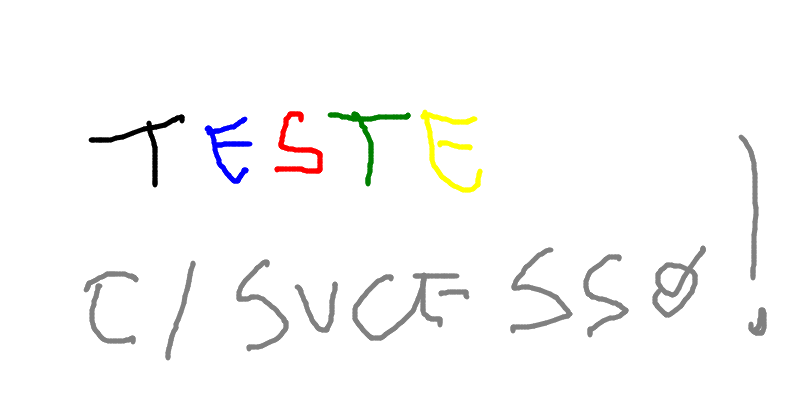 TESTE
C/SUCESSO!